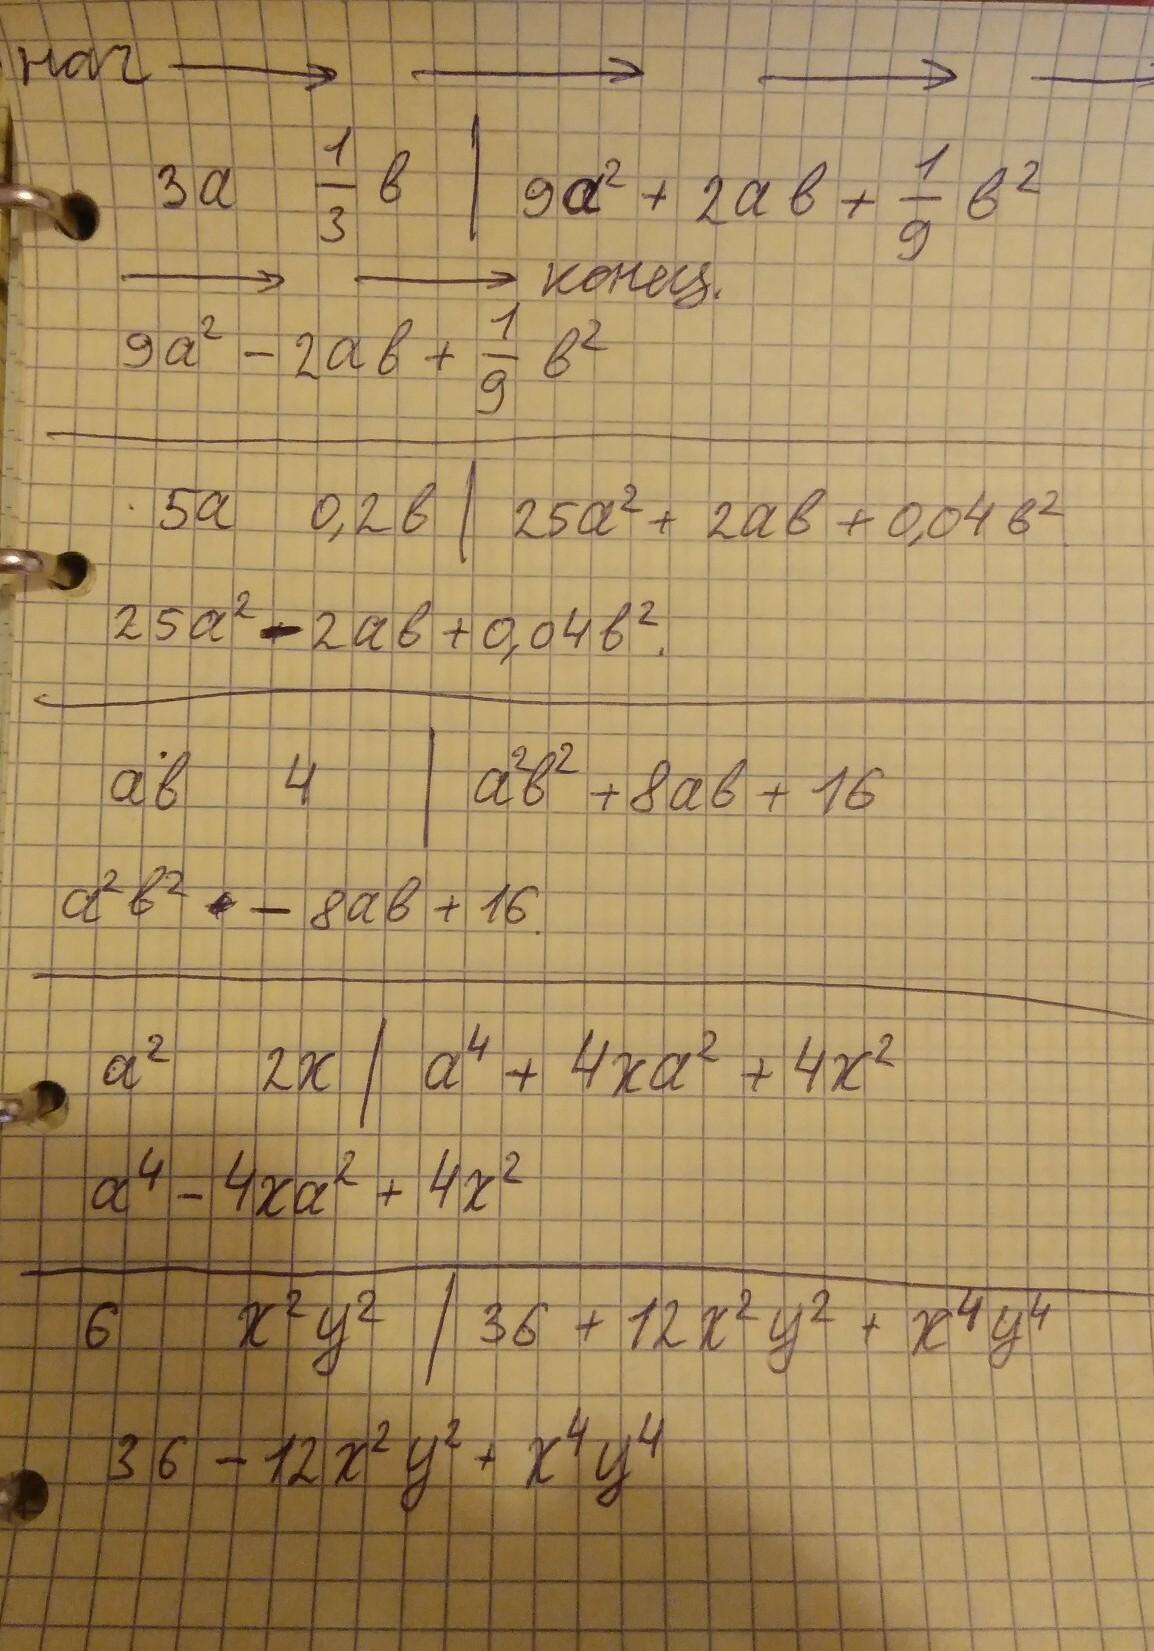 нач → → → →
3a 1/3 в | 9a² + 2aв + 1/9 в²
→ → конец.
9a² - 2aв + 1/9 в²
5a 0,2в | 25a² + 2aв + 0,04в²
25a² - 2aв + 0,04в².
aв 4 | a²в² + 8aв + 16
a²в² - 8aв + 16.
a² 2x | a⁴ + 4xa² + 4x²
a⁴ - 4xa² + 4x²
6 x²y² | 36 + 12x²y² + x⁴y⁴
36 - 12x²y² + x⁴y⁴